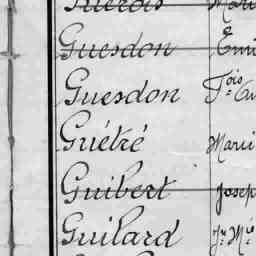 Guesdon
Guesdon Fois
Guétré Marie
Guibert Josep
Guilard Jn Mie